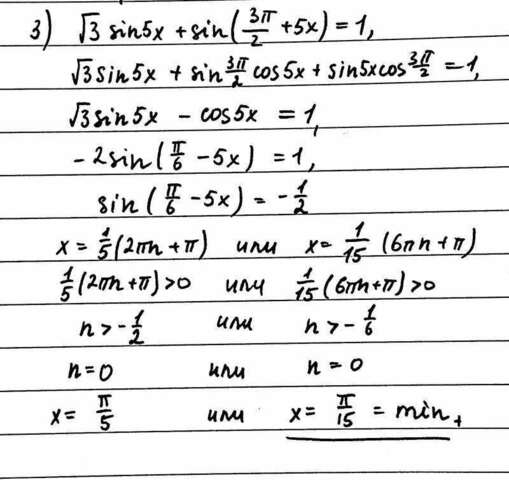 3) √3 sin5x + sin(3π/2 + 5x) = 1,
√3 sin5x + sin 3π/2 cos5x + sin5x cos 3π/2 = 1,
√3 sin5x - cos5x = 1,
-2sin(π/6 - 5x) = 1,
sin(π/6 - 5x) = -1/2
x = 1/5(2πn + π) или x = 1/15 (6πn + π)
1/5(2πn + π) > 0 или 1/15(6πn + π) > 0
n > -1/2 или n > -1/6
n = 0 или n = 0
x = π/5 или x = π/15 = min₊